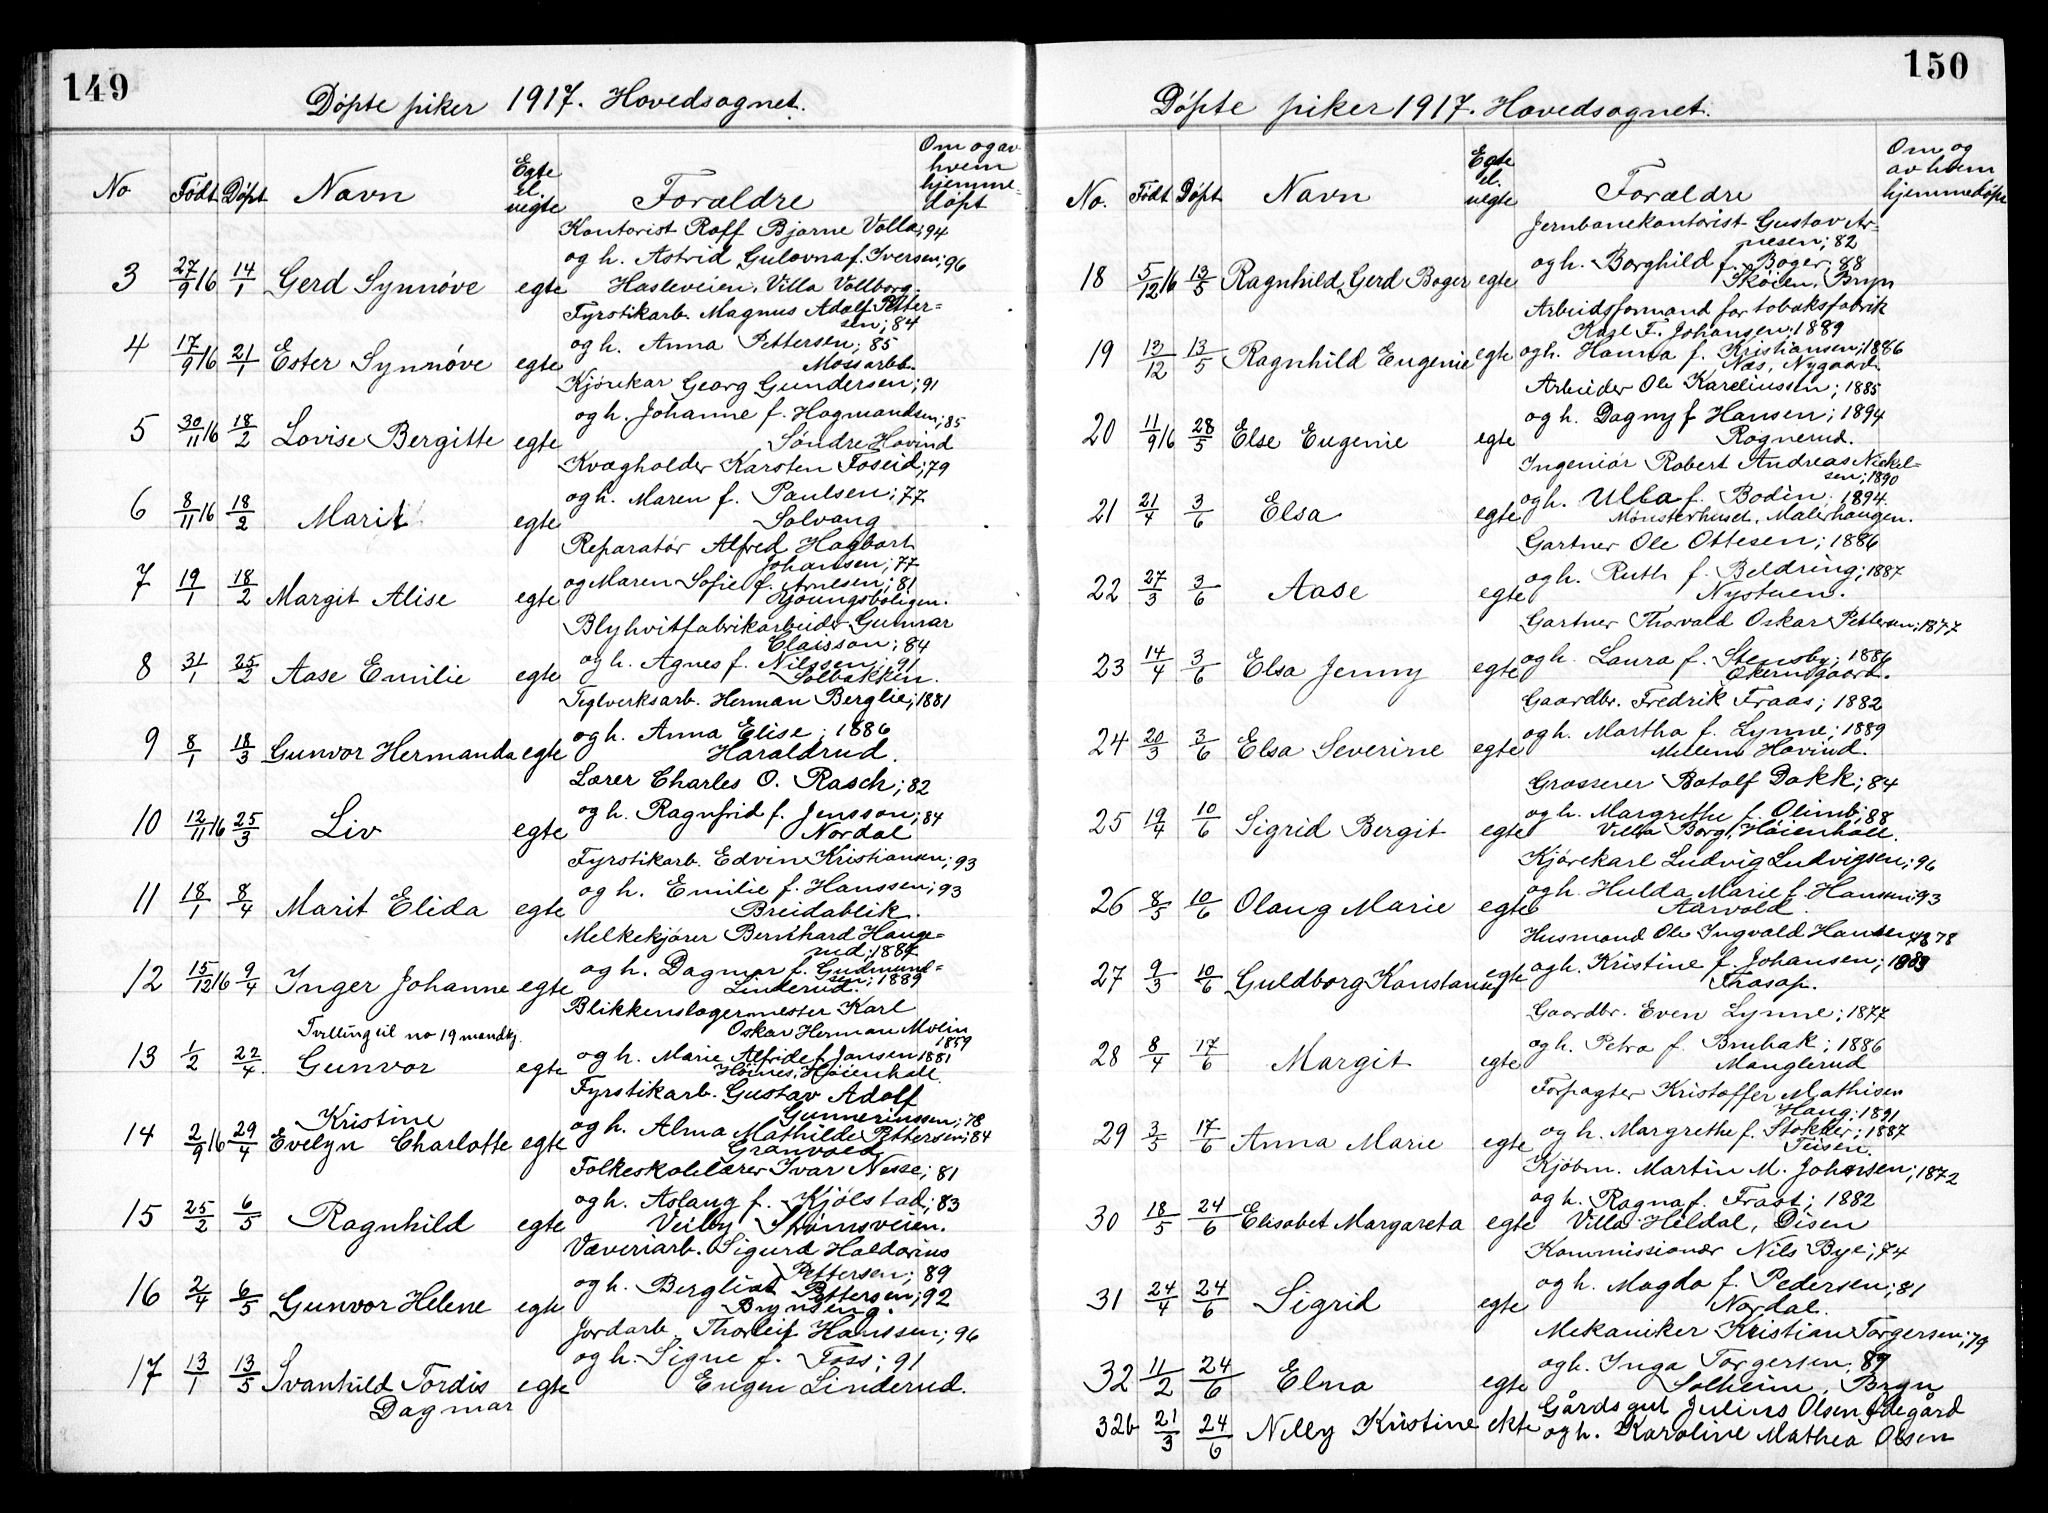 149
Døpte piker 1917. Hovedsognet.
No Født Døpt Navn Egte el. uegte Forældre Om og av hvem hjemmedøpt
Kontorist Roff Bjarne Volla; 94
og h. Astrid Gulovna f. Iversen; 96
3 27/9 16 14/1 Gerd Synnøve egte Hasleveien, Villa Vollborg.
Fyrstikarb. Magnus Adolf Petter-
sen; 84
og h. Anna Pettersen; 85
4 17/9 16 21/1 Ester Synnøve egte
Kjørekar Georg Gundersen; 91
og h. Johanne f. Hagmandsen; 85
5 30/11 16 18/2 Lovise Bergitte egte Søndre Hovind
Kvægholder Karsten Foseid; 79
og h. Maren f. Paulsen; 77
6 8/11 16 18/2 Marit egte Solvang
Reparatør Alfred Hagbart
Johansen; 77
og Maren Sofie f. Arnesen; 81
7 19/1 18/2 Margit Alise egte Youngsboligen.
Blyhvitfabrikarbeider Gunnar
Claisson; 84
og h. Agnes f. Nilssen; 91
8 31/1 25/2 Aase Emilie egte Solbakken.
Teglverksarb. Herman Berglie; 1881
og h. Anna Elise; 1886
9 8/1 18/3 Gunvor Hermanda egte Haraldrud.
Lærer Charles O. Rasch; 82
og h. Ragnfrid f. Jensson; 84
10 12/11 16 25/3 Liv egte Nordal
Fyrstikarb. Edvin Kristiansen; 93
og h. Emilie f. Hanssen; 93
11 18/1 8/4 Marit Elida egte Breidablik.
Melkekjører Bernhard Hauge-
rud; 1887
og h. Dagmar f. Gudmund-
sen; 1889
12 15/12 16 9/4 Inger Johanne egte Linderud.
Blikkenslagermester Karl
Oskar Herman Moein
1859
Tvilling til no 19 mandkj.
og h. Marie Alfride f. Jansen 1881
13 1/2 22/4. Gunvor egte Høines, Høienhall.
Fyrstikarb. Gustav Adolf
Gunnerinssen; 78
Kristine
og h. Alma Mathilde Pettersen; 84
14 2/9 16 29/4 Evelyn Charlotte egte Granvold
Folkeskolelærer Ivar Nesse; 81
og h. Aslaug f. Kjølstad; 83
15 25/2 6/5 Ragnhild egte Veilby Strømsveien.
Væveriarb. Sigurd Haldorius
Pettersen; 89
og h. Bergliot Pettersen; 92
16 2/4 6/5 Gunvor Helene egte Brynseng.
Jordarb. Thorleif Hanssen; 96
og h. Signe f. Foss; 91
17 13/1 13/5 Svanhild Tordis egte Engen Linderud.
Dagmar
150
Døpte piker 1917. Hovedsognet.
No. Født Døpt Navn Egte el. uegte Forældre Om og av hvem hjemmedøpt
Jernbanekontorist Gustav Ar-
nesen; 82
og h. Borghild f. Boger; 88
18 5/12 16 13/5 Ragnhild Gerd Boger egte Skøien, Bryn
Arbeidsformand for tobaksfabrik
Karl F. Johansen; 1889
og h. Hanna f. Kristiansen; 1886
19 13/12 13/5 Ragnhild Eugenie egte Næs, Nygaard.
Arbeider Ole Kareliussen; 1885
og h. Dagny f Hansen; 1894
20 11/9 16 28/5 Else Eugenie egte Rognerud.
Ingeniør Robert Andreas Nickel-
sen; 1890
og h. Ulla f. Bodin. 1894.
21 21/4 3/6 Elsa egte Mønsterhuset, Malerhaugen.
Gartner Ole Ottesen; 1886
og h. Ruth f. Beldring; 1887
22 27/3 3/6 Aase egte Nystuen.
Gartner Thorvald Oskar Pettersen; 1877
og h. Laura f. Stensby; 1886
23 14/4 3/6 Elsa Jenny egte Økern gaard.
Gaardbr. Fredrik Fraas; 1882
og h. Martha f. Lynne; 1889
24 20/3 3/6 Elsa Severine egte Mellem Hovind.
Grosserer Botolf Dokk; 84
og h. Margrethe f. Olimb; 88
25 19/4 10/6 Sigrid Bergit egte Villa Borg, Høienhall.
Kjørekarl Ludvig Ludvigsen; 96
og h. Hulda Marie f. Hanssen; 93
26 8/5 10/6 Olaug Marie egte Aarvold.
Husmand Ole Ingvald Hansen; 78
og h. Kristine f. Johansen; 1883
27 9/3 10/6 Guldborg Konstanse egte Frasap.
Gaardbr. Even Lynne; 1877
og h. Petra f. Brubak; 1886
28 8/4 17/6 Margit egte Manglerud
Forpagter Kristoffer Mathisen
Haug; 1891
og h. Margrethe f. Stokker; 1887
29 3/5 17/6 Anna Marie egte Teisen.
Kjøbm. Martin M. Johansen; 1872
og h. Ragna f. Frast; 1882
30 18/5 24/6 Elisabet Margareta egte Villa Heldal, Disen
Kommissionær Nils Bye; 74
og h. Magda f. Pedersen; 81
31 24/4 24/6 Sigrid egte Nordal.
Mekaniker Kristian Torgersen; 79
og h. Inga Torgersen. 89
32 11/2 24/6 Elna egte Solheim, Bryn
Gårdsgut Julius Olsen Ødegård
32b 21/3 24/6 Nelly Kristine ekte og h. Karoline Mathea Olsen